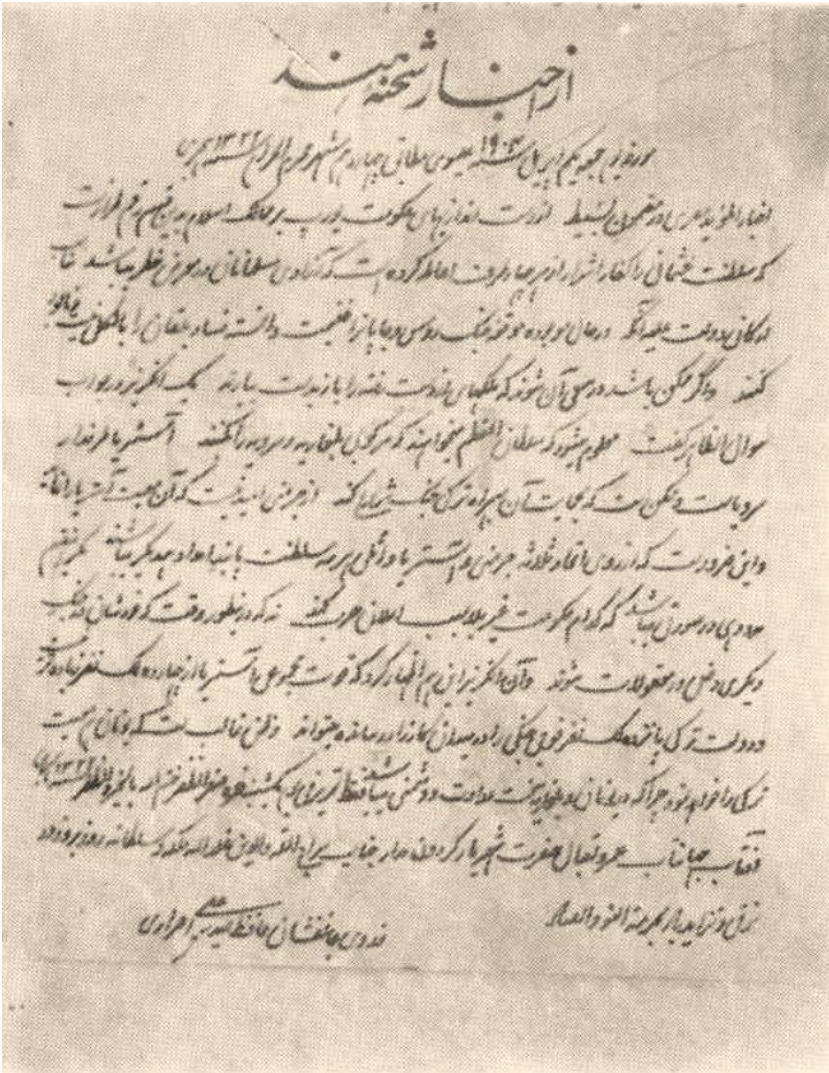 از اخبار شحنه هند
مورخه یوم جمعه یکم اپریل سنه ۱۹۰۴ عیسوی مطابق چهاردهم شهر محرم الحرام سنه ۱۳۲۲ هجری
اخبار المؤید مصری در مضمون بسیط از دست اندازیهای حکومت یورپ بر ممالک اسلام بدین قسم رقم طراز است
که سلطنت عثمانی را کفار اشرار از هر چهار طرف احاطه کرده است که آزادی مسلمانان در معرض خطر میباشد
ارکانی بدولت علیه آنکه در حال موجوده موقع جنگ روس و جاپان را غنیمت دانسته فساد بلقان را بالکلی
کنند و اگر ممکن باشد در سعی آن شوند که ملکهای از دست رفته را باز بدست بیارند یک انگریز در جواب
سوال الظاهر گفت معلوم میشود که سلطان المعظم میخواهند که سرکوبی بلغاریه و سرویه را کنند آستریا طرفدار
سرویا است و ممکن است که بحمایت آن همراه ترکی جنگ شروع کند از جرمنی امید نیست که آن حمایت آستریا
و این ضرورت که از روی اتحاد ثلاثه جرمنی و آستریا و اتلی هر سه سلطنت پابند امداد همدیگر میباشند مگر
همدهی در صورتی میباشد که کدام حکومت غیر بلا سبب اعلان حرب کند نه که در بطور وقت که خودشان در جنگ
دیگری دخل در معقولات شوند و آن انگریز این هم اظهار کرد که قوت مجموعی آستریا از چهارده لک نفر زیاده
و دولت ترکی پانزده لک نفر فوج جنگی را در میدان کارزار رسانده میتواند و ظن غالب است که یونان هم حمایت
ترکی را خواهد نمود چرا که در یونان و بلغاریه سخت عداوت و دشمنی میباشد فقط تحریر یوم یکشنبه صفر المظفر ختم الله بالخیر و الظفر سنه ۱۳۲۲ هجری
آفتاب جهانتاب عمر و اقبال حضرت شهریار گردون مدار جناب سراج الملة والدین خلد الله ملکه و سلطانه روز بروز در
ترقی و تزاید باد بحرمة النون والصاد
فدوی جانفشان حافظ حیدر علی احراری